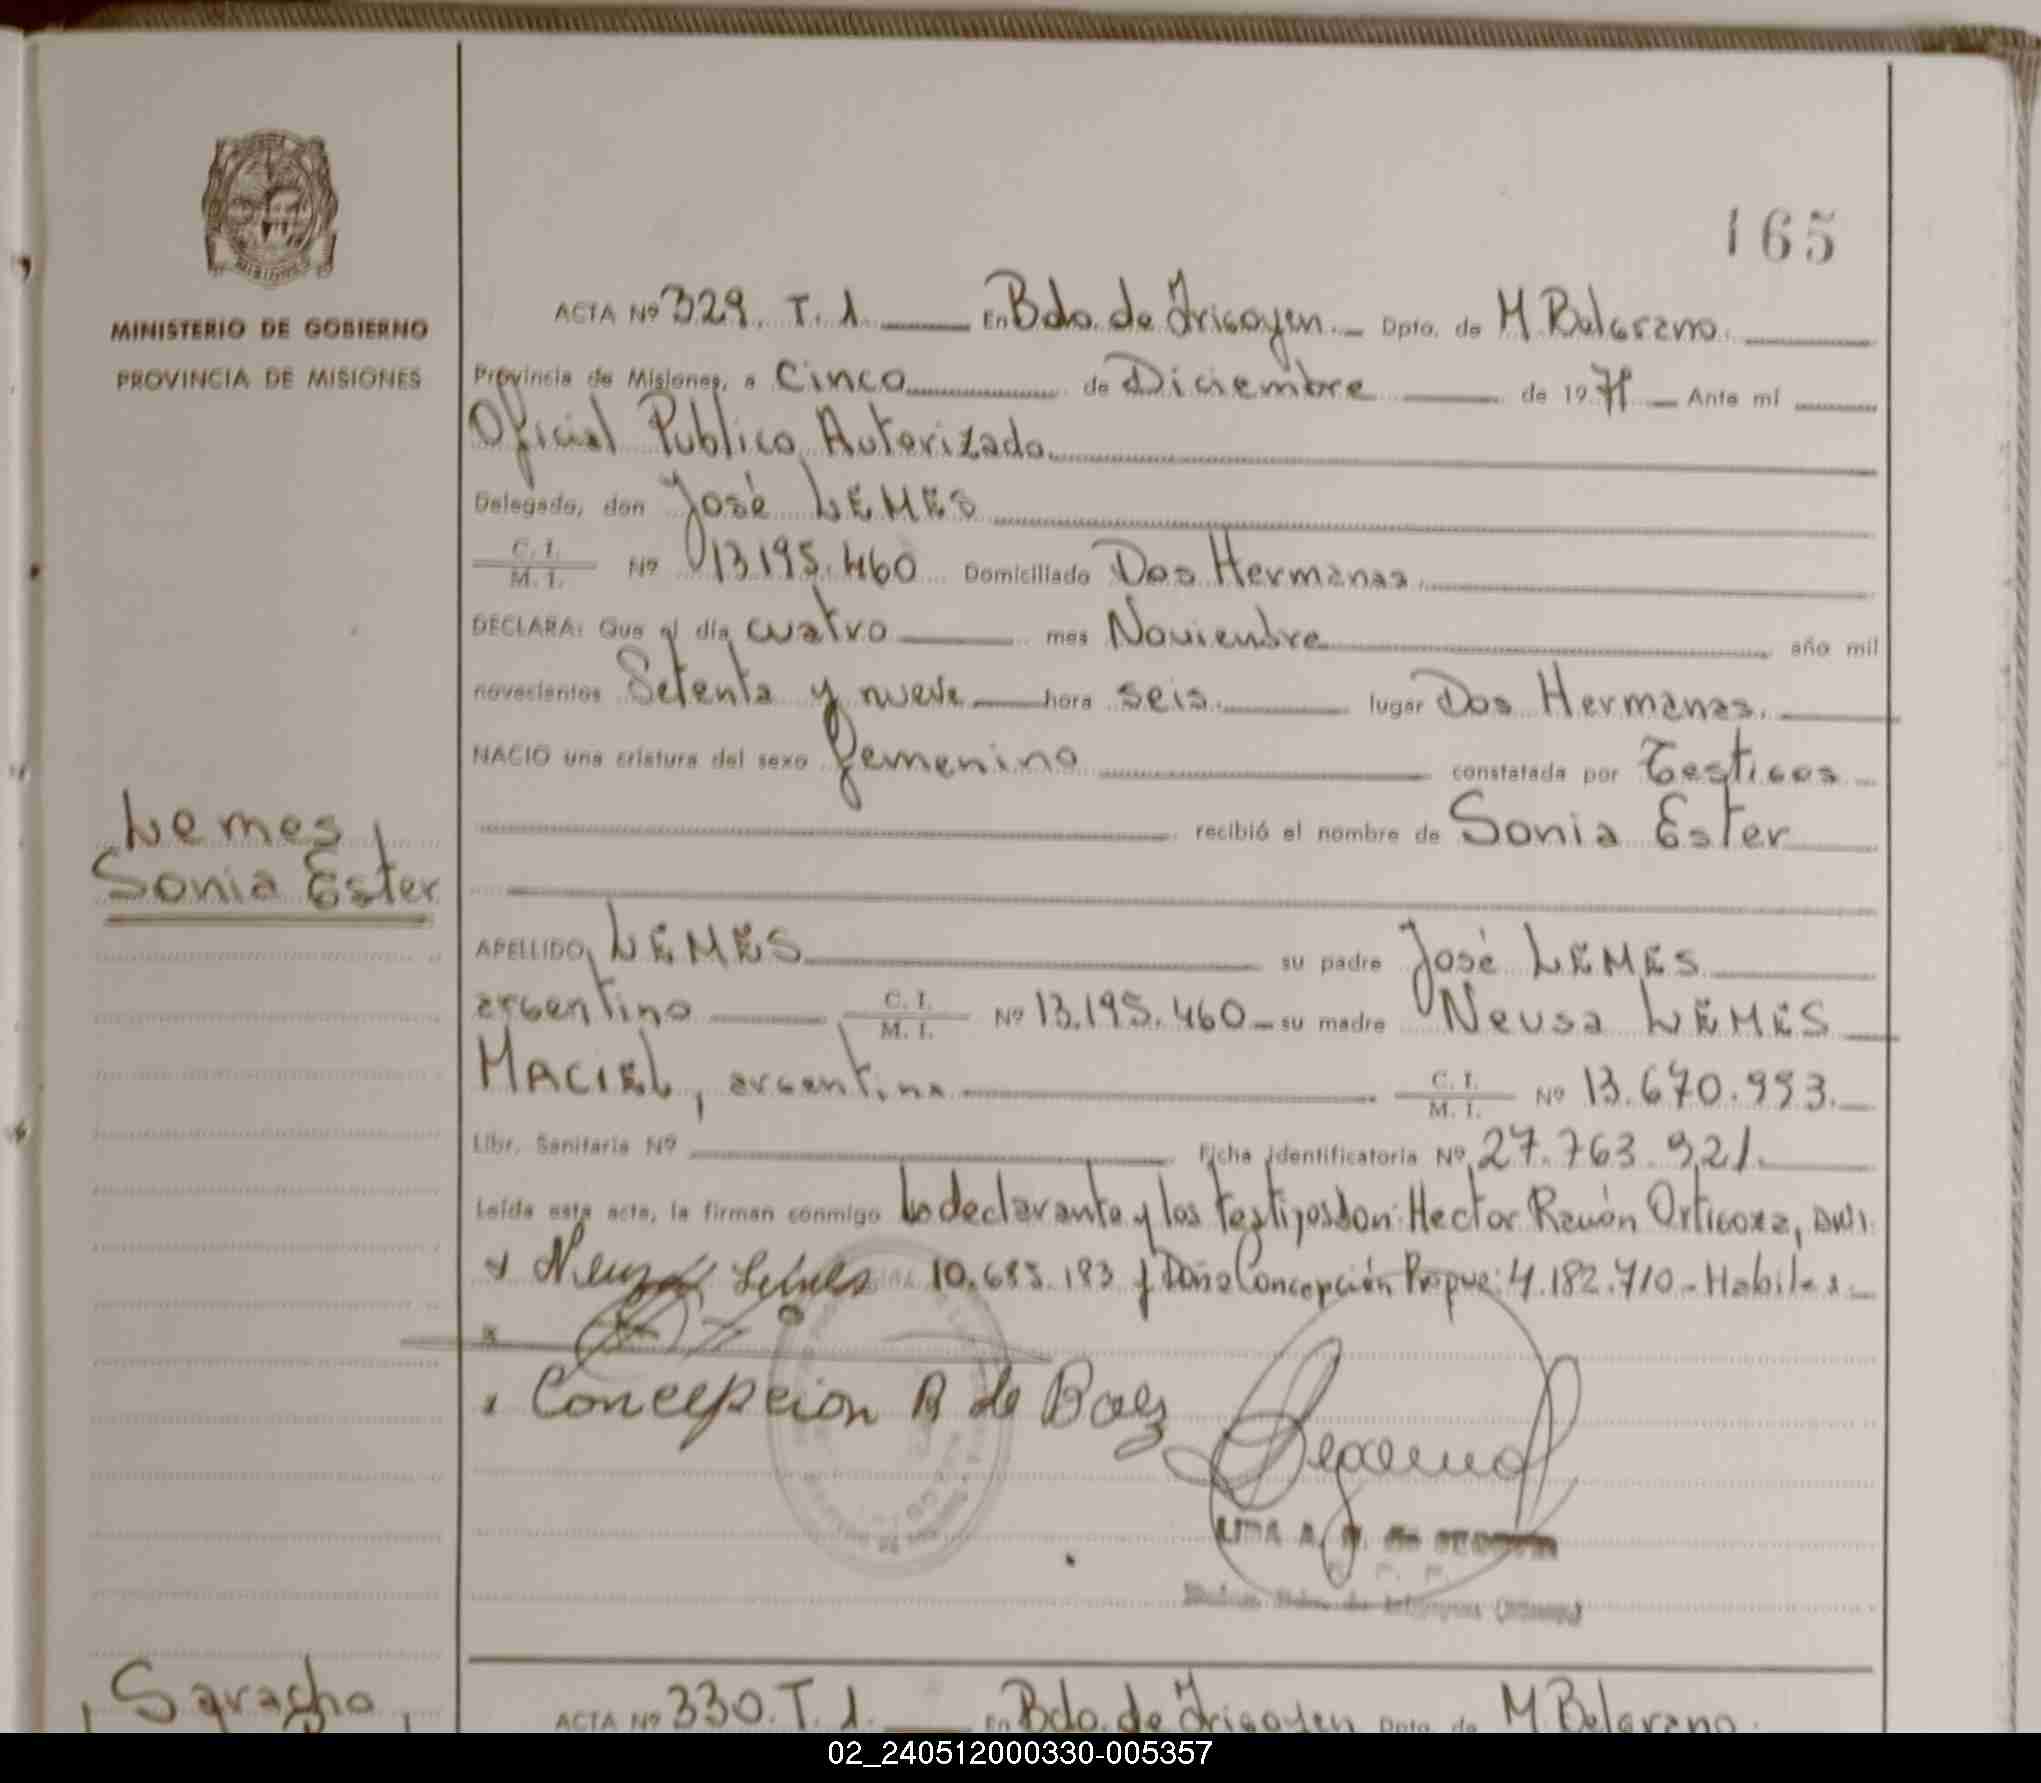 165
MISIONES
MINISTERIO DE GOBIERNO
PROVINCIA DE MISIONES
Lemes,
Sonia Ester
ACTA Nº 329. T. 1. En Bdo. de Irigoyen. Dpto. de M. Belgrano.
Provincia de Misiones, a Cinco de Diciembre de 19 Ante mí
Oficial Publico Autorizado.
Delegado, don José LEMES
C. I.
M. I. Nº 13.195.460 Domiciliado Dos Hermanas.
DECLARA: Que el día cuatro mes Noviembre año mil
novecientos Setenta y nueve hora seis. lugar Dos Hermanas.
NACIO una criatura del sexo femenino constatada por Testigos
recibió el nombre de Sonia Ester
APELLIDO LEMES su padre José LEMES
argentino C. I.
M. I. Nº 13.195.460 su madre Neusa LEMES
MACIEL, argentina C. I.
M. I. Nº 13.670.993.
Libr. Sanitaria Nº Ficha identificatoria Nº 27.763.921.
Leída esta acta, la firman conmigo declarante y los testigos don: Hector Ramón D.N.I.
10.685.183 y Doña Concepción 4.182.710 - Habiles.
Concepcion B de Baez
Saracho,
ACTA Nº 330. T. 1. En Bdo. de Irigoyen Dpto. de M. Belgrano.
02_240512000330-005357